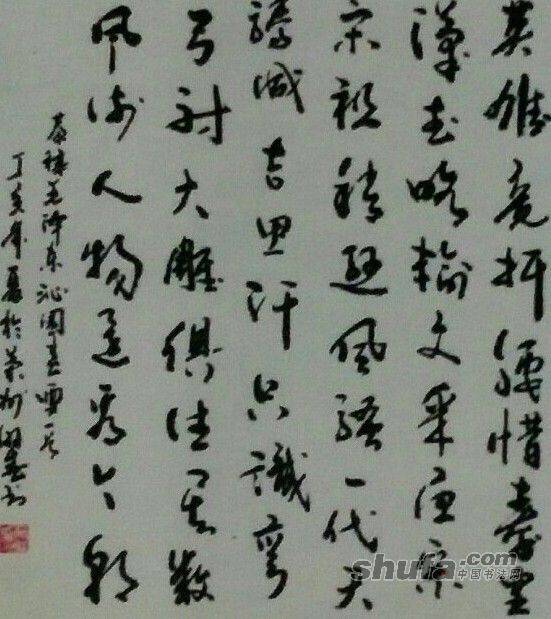 英雄竞折腰惜秦皇
漢武略輸文采唐宗
宋祖稍遜风騷一代天
驕成吉思汗只識彎
弓射大雕俱往矣数
风流人物还看今朝
恭錄毛泽东沁園春雪一首
丁亥年夏於兰州
shufa.com
中国书法网